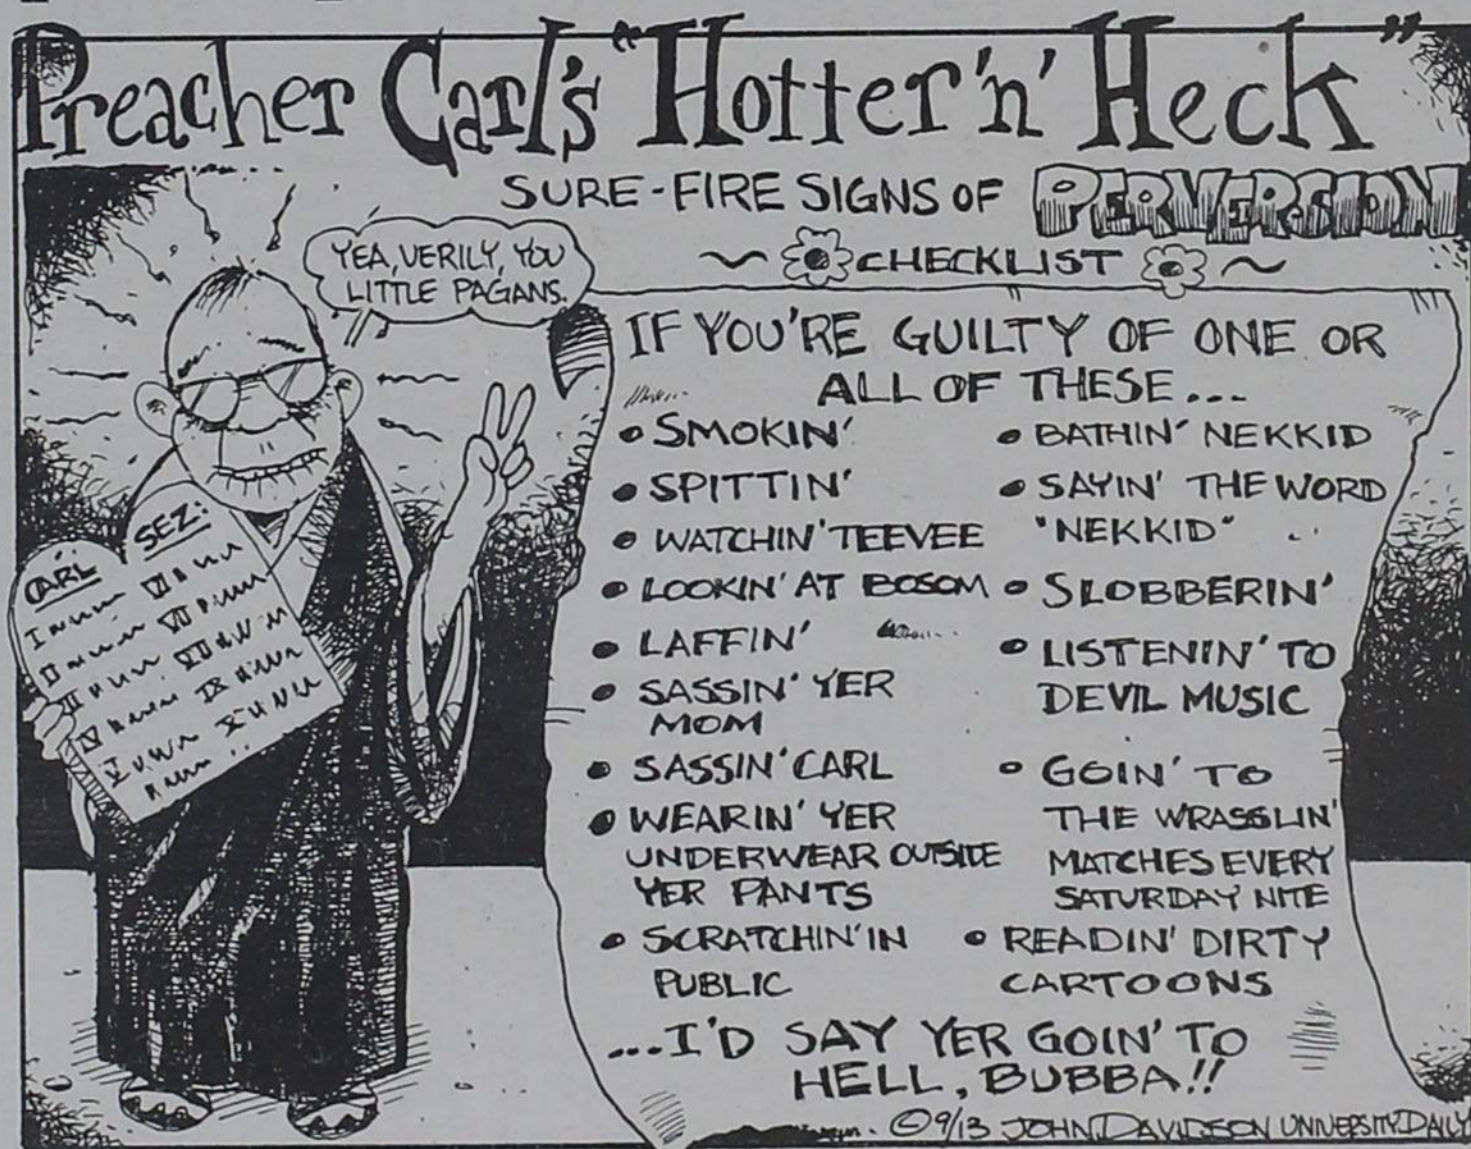 Preacher Carl's "Hotter 'n' Heck"
SURE-FIRE SIGNS OF PERVERSION
CHECKLIST
YEA, VERILY, YOU
LITTLE PAGANS.
CARL
SEZ:
I
II
III
IV
V
VI
VII
VIII
IX
X
IF YOU'RE GUILTY OF ONE OR
ALL OF THESE...
• SMOKIN'
• SPITTIN'
• WATCHIN' TEEVEE
• LOOKIN' AT BOSOM
• LAFFIN'
• SASSIN' YER
MOM
• SASSIN' CARL
• WEARIN' YER
UNDERWEAR OUTSIDE
YER PANTS
• SCRATCHIN' IN
PUBLIC
• BATHIN' NEKKID
• SAYIN' THE WORD
"NEKKID"
• SLOBBERIN'
• LISTENIN' TO
DEVIL MUSIC
• GOIN' TO
THE WRASSLIN'
MATCHES EVERY
SATURDAY NITE
• READIN' DIRTY
CARTOONS
...I'D SAY YER GOIN' TO
HELL, BUBBA!!
©9/13 JOHN DAVIDSON UNIVERSITY DAILY